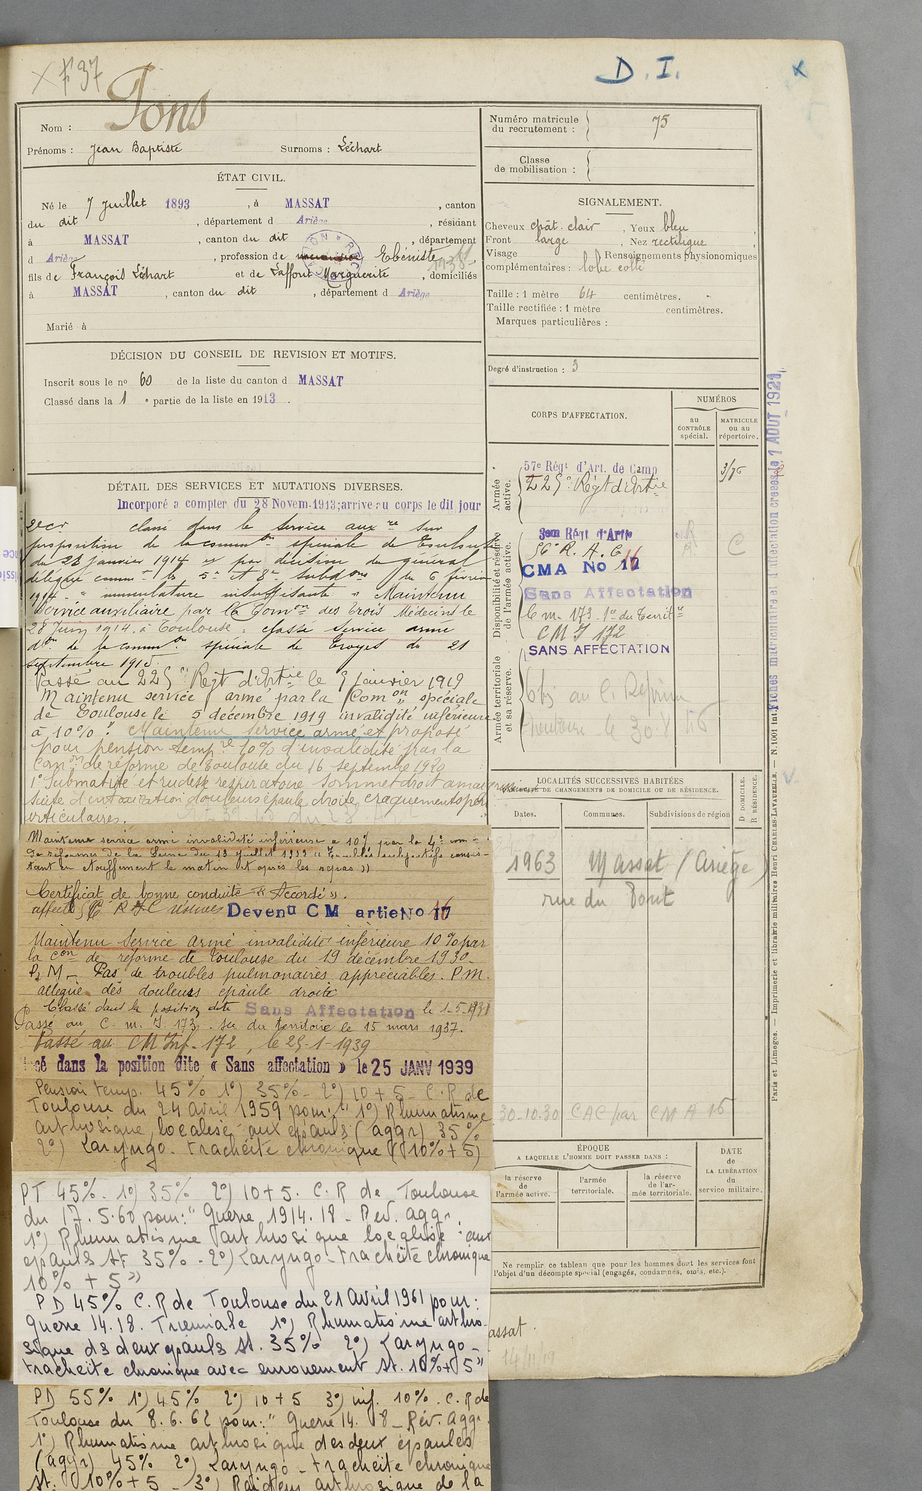 X F 37
D. I.
x
Nom : Pons
Prénoms : Jean Baptiste Surnoms : Léchart
ÉTAT CIVIL.
Né le 7 juillet 1893, à MASSAT, canton
du dit, département d Ariège, résidant
à MASSAT, canton du dit, département
d Ariège, profession de Ebéniste
fils de François Léchart et de Laffont Marguerite, domiciliés
à MASSAT, canton du dit, département d Ariège
Marié à
DÉCISION DU CONSEIL DE REVISION ET MOTIFS.
Inscrit sous le no 60 de la liste du canton d MASSAT
Classé dans la 1e partie de la liste en 1913.
DÉTAIL DES SERVICES ET MUTATIONS DIVERSES.
Incorporé a compter du 28 Novem. 1913; arrivé au corps le dit jour
classé dans le service auxre sur
proposition de la common spéciale de Toulouse
du 23 janvier 1914 et par décision du général
délégué commt le 5e et 8e subdons du 6 février
1914. "immutature insuffisante" Maintenu
Service auxiliaire par la Comon des Trois Médecins le
28 Juin 1914 à Toulouse. classé service armé
don de la common spéciale de Troyes du 21
septembre 1915
Passé au 225e Régt d'Artie le 9 janvier 1919
Maintenu service armé par la Comon spéciale
de Toulouse le 5 décembre 1919 invalidité inférieure
à 10%. Maintenu service armé et proposé
pour pension tempre 10% d'invalidité par la
Comon de réforme de Toulouse du 16 septembre 1920
1o Submatité et rudesse respiratoire sommet droit
suite d'intoxication douleurs épaule droite craquements
articulaires.
Maintenu service armé invalidité inférieure à 10% par la 4e
de réforme de la Seine du 13 juillet 1922 "Troubles subjectifs consis
tant en étouffement le matin et après les repas"
Certificat de bonne conduite "Accordé".
affecté Devenu CM artie No 17
Maintenu Service armé invalidité inférieure 10% par
la Con de réforme de Toulouse du 19 décembre 1930.
P.M - Pas de troubles pulmonaires appréciables. P.M.
allègue des douleurs épaule droite
Classé dans la position dite Sans Affectation le 1-5-1931
Passé au C. m. I 173. du territoire le 15 mars 1937.
Passé au CM Inf. 172, le 25-1-1939
sé dans la position dite « Sans affectation » le 25 JANV 1939
Pension temp. 45% 1o) 35% - 2o) 10+5 - C.R de
Toulouse du 24 avril 1959 pour: "1o) Rhumatisme
arthrosique localisé aux épaules (aggr) 35%
2o) Laryngo-trachéite chronique (10%+5)
PT 45%. 1o) 35% 2o) 10+5. C.R de Toulouse
du 17.5.60 pour: "Guerre 1914.18 - Rév. aggr.
1o) Rhumatisme arthrosique localisé aux
épaules St. 35% - 2o) Laryngo-trachéite chronique
10% + 5"
PD 45% C.R de Toulouse du 21 avril 1961 pour:
Guerre 14.18. Triennale 1o) Rhumatisme arthro-
sique ds deux épaules St. 35% 2o) Laryngo-
trachéite chronique avec enrouement St. 10%+5"
PD 55% 1o) 45% 2o) 10+5 3o) inf. 10%. C.R de
Toulouse du 8.6.62 pour: "Guerre 14.18 - Rév. Aggr.
1o) Rhumatisme arthrosique des deux épaules
(aggr) 45% 2o) Laryngo-trachéite chronique
St. 10%+5 - 3o) Raideur arthrosique de la
Numéro matricule du recrutement : 75
Classe de mobilisation :
SIGNALEMENT.
Cheveux chât. clair, Yeux bleu
Front large, Nez rectiligne
Visage Renseignements physionomiques
complémentaires : lobe collé
Taille : 1 mètre 64 centimètres.
Taille rectifiée : 1 mètre centimètres.
Marques particulières :
Degré d'instruction : 3
CORPS D'AFFECTATION.
NUMÉROS
AU CONTRÔLE spécial.
MATRICULE ou au répertoire.
Armée active.
57e Régt d'Art. de Camp
225e Régt d'Artie
Disponibilité et réserve de l'armée active.
3em Régt d'Artie
56e R. A. C
CMA No 17
Sans Affectation
C. m. 173
C M I 172
SANS AFFECTATION
C
Armée territoriale et sa réserve.
LOCALITÉS SUCCESSIVES HABITÉES
PAR SUITE DE CHANGEMENTS DE DOMICILE OU DE RÉSIDENCE.
Dates. Communes. Subdivisions de région
D. DOMICILE.
R. RÉSIDENCE.
1963 Massat (Ariège)
rue du Pont
30-10-30 CAC par CMA 16
ÉPOQUE
A LAQUELLE L'HOMME DOIT PASSER DANS :
la réserve de l'armée active.
l'armée territoriale.
la réserve de l'armée territoriale.
DATE de LA LIBÉRATION du service militaire.
Ne remplir ce tableau que pour les hommes dont les services font
l'objet d'un décompte spécial (engagés, condamnés, omis, etc.).
assat.
Paris et Limoges. — Imprimerie et librairie militaires Henri CHARLES-LAVAUZELLE. — N. 1001
Fiches matriculaire et d'affectation créées le 1 AOUT 1921